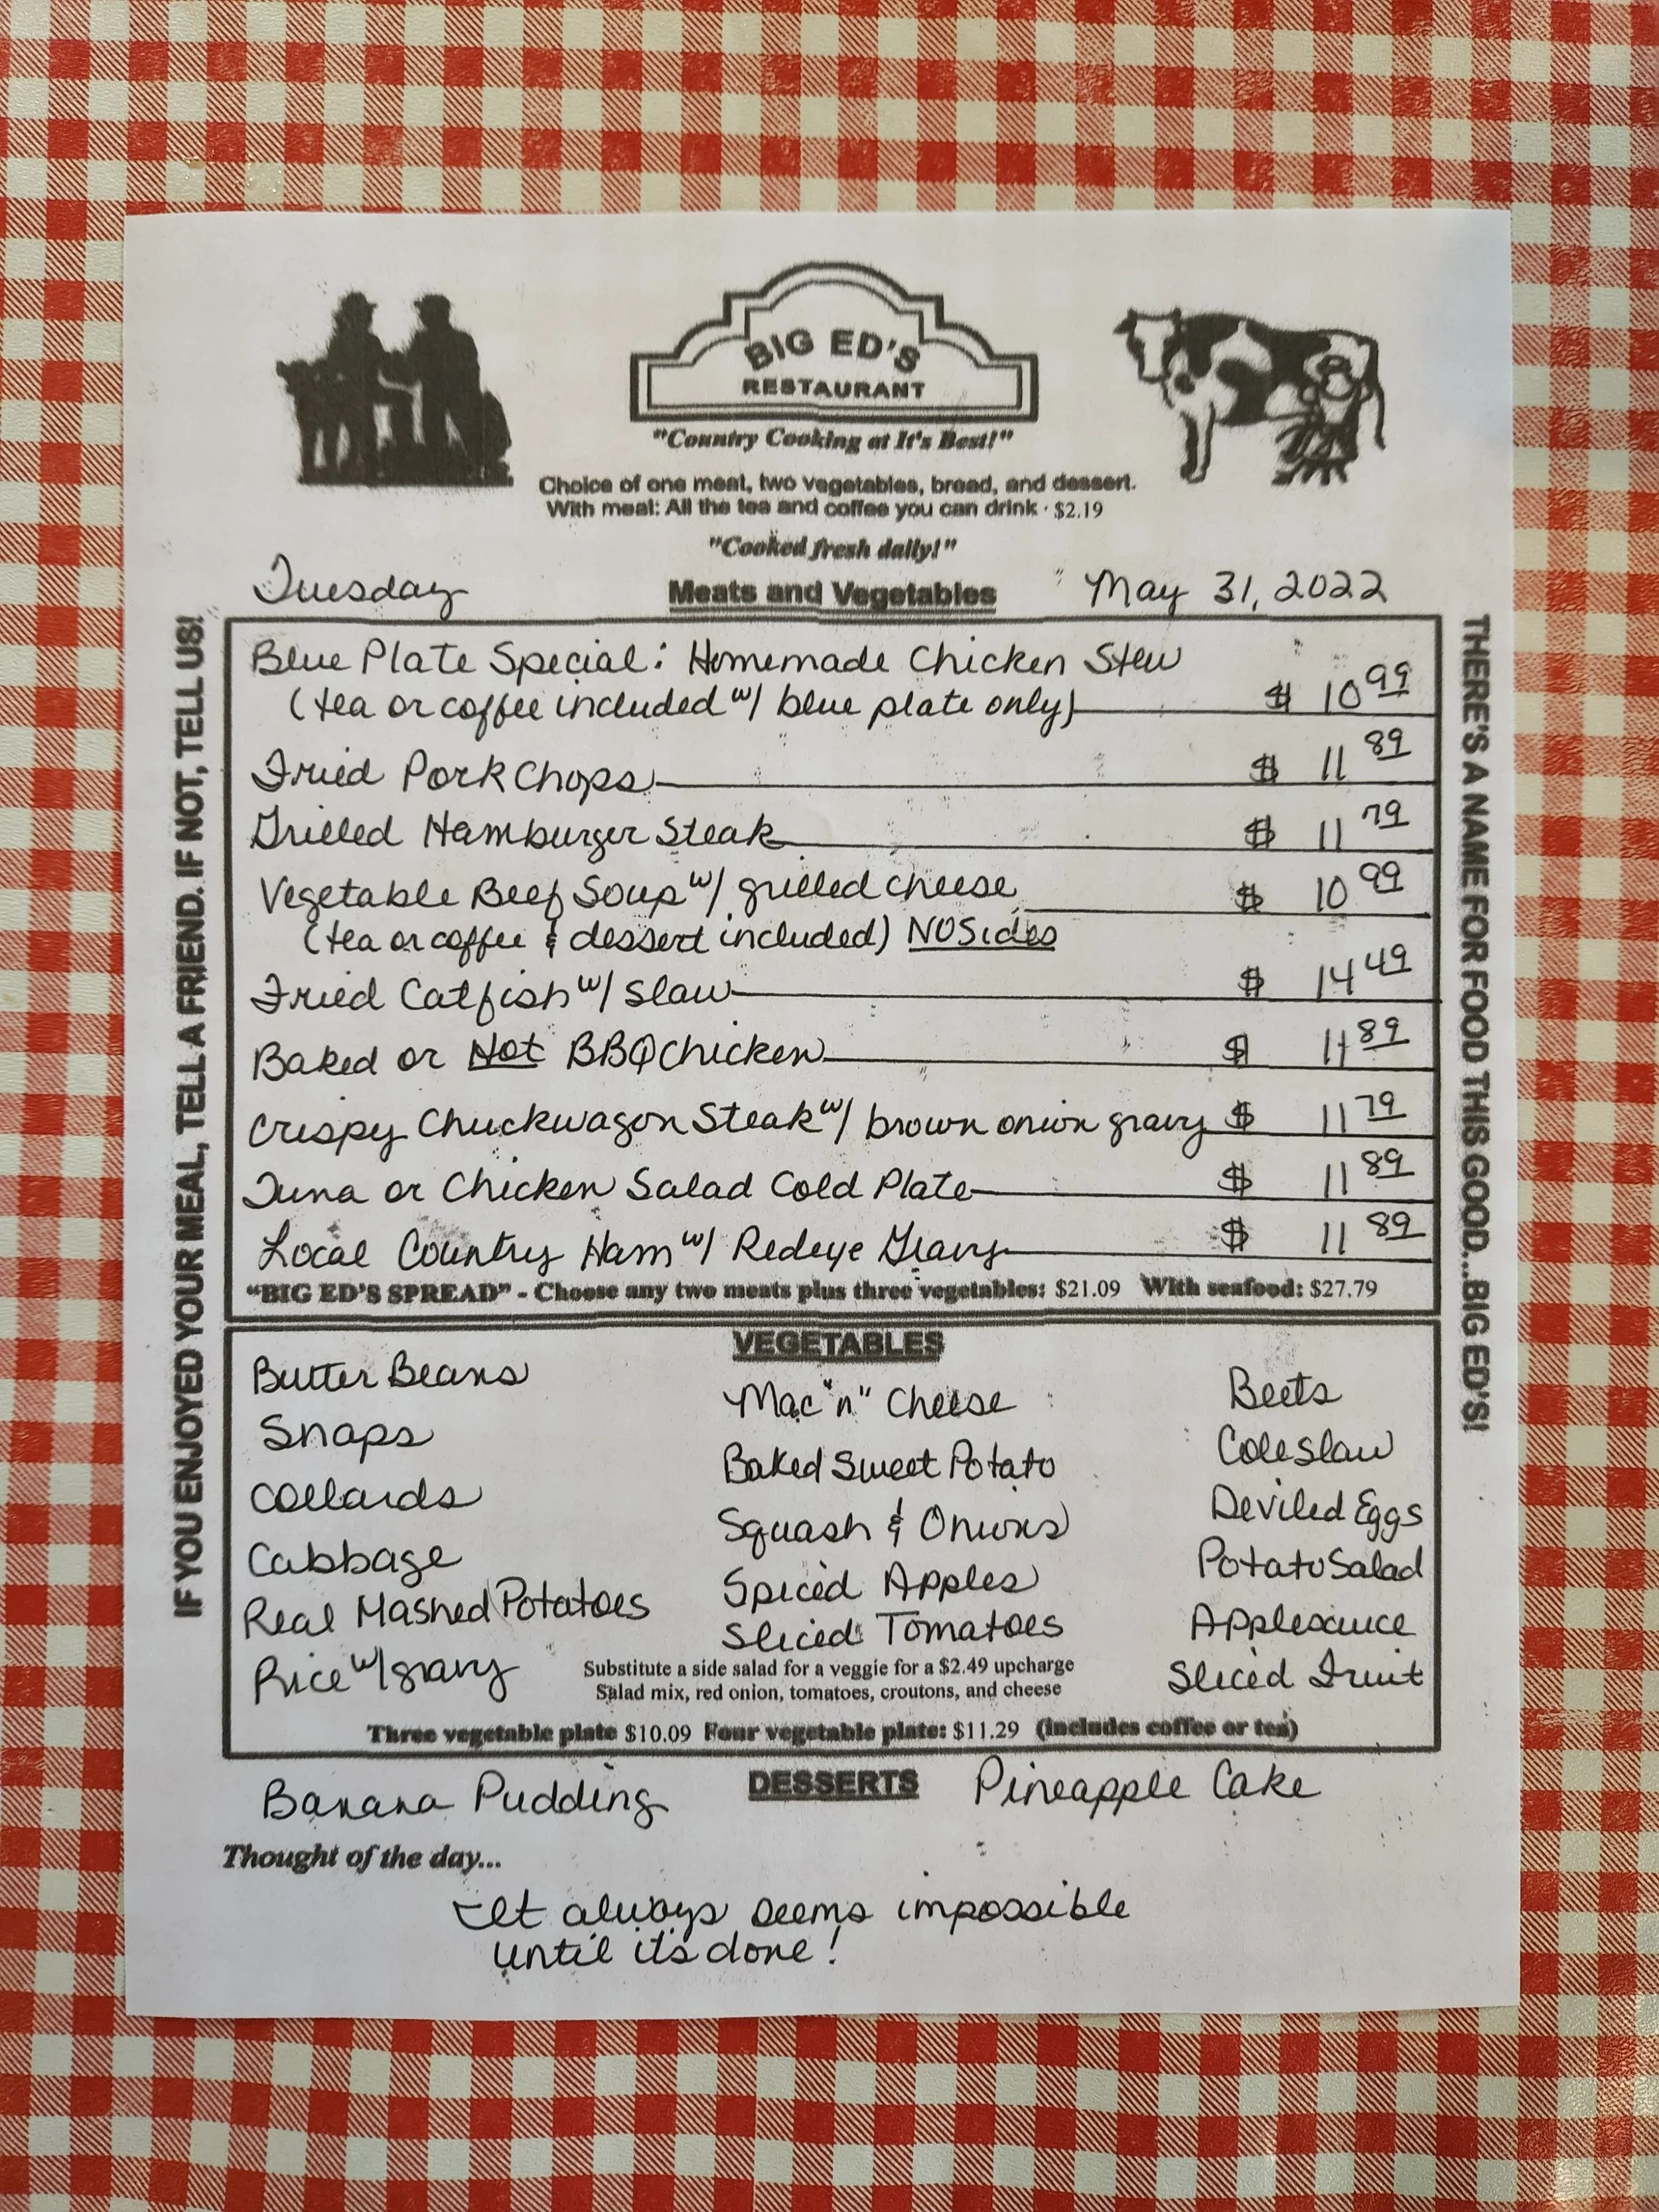 BIG ED'S
RESTAURANT
"Country Cooking at It's Best!"
Choice of one meat, two vegetables, bread, and dessert.
With meal: All the tea and coffee you can drink · $2.19
"Cooked fresh daily!"
Tuesday Meats and Vegetables May 31, 2022
IF YOU ENJOYED YOUR MEAL, TELL A FRIEND. IF NOT, TELL US!
Blue Plate Special: Homemade Chicken Stew
(tea or coffee included w/ blue plate only) $ 10 99
Fried Pork Chops $ 11 89
Grilled Hamburger Steak $ 11 79
Vegetable Beef Soup w/ grilled cheese $ 10 99
(tea or coffee & dessert included) NO Sides
Fried Catfish w/ slaw $ 14 49
Baked or Hot BBQ Chicken $ 11 89
Crispy Chuckwagon Steak w/ brown onion gravy $ 11 79
Tuna or Chicken Salad Cold Plate $ 11 89
Local Country Ham w/ Redeye Gravy $ 11 89
"BIG ED'S SPREAD" - Choose any two meats plus three vegetables: $21.09 With seafood: $27.79
THERE'S A NAME FOR FOOD THIS GOOD...BIG ED'S!
VEGETABLES
Butter Beans
Snaps
Collards
Cabbage
Real Mashed Potatoes
Rice w/ gravy
Mac "n" Cheese
Baked Sweet Potato
Squash & Onions
Spiced Apples
Sliced Tomatoes
Beets
Coleslaw
Deviled Eggs
Potato Salad
Applesauce
Sliced Fruit
Substitute a side salad for a veggie for a $2.49 upcharge
Salad mix, red onion, tomatoes, croutons, and cheese
Three vegetable plate $10.09 Four vegetable plate: $11.29 (includes coffee or tea)
Banana Pudding DESSERTS Pineapple Cake
Thought of the day...
It always seems impossible
until it's done!